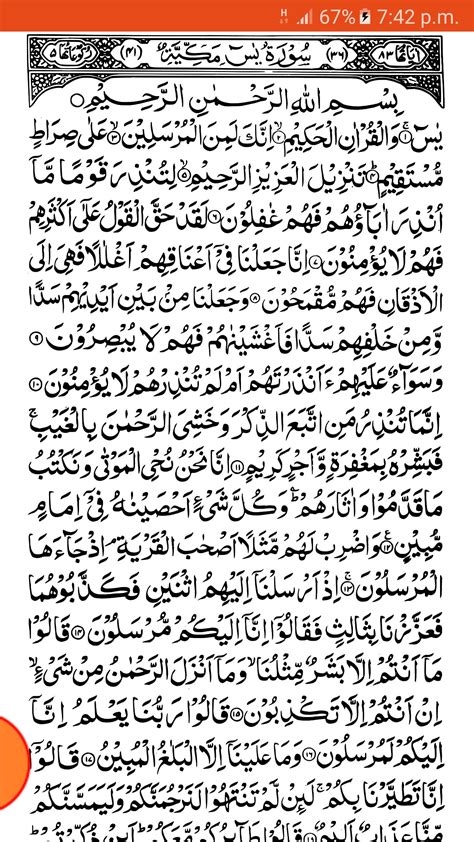 67% 7:42 p.m.
اٰيَاتُهَا ٨٣ (٣٦) سُوْرَةُ يٰسٓ مَكِّيَّةٌ (٤١) رُكُوْعَاتُهَا ٥
بِسْمِ اللهِ الرَّحْمٰنِ الرَّحِيْمِ
يٰسٓ ۝١ وَالْقُرْاٰنِ الْحَكِيْمِ ۝٢ اِنَّكَ لَمِنَ الْمُرْسَلِيْنَ ۝٣ عَلٰى صِرَاطٍ
مُّسْتَقِيْمٍ ۝٤ تَنْزِيْلَ الْعَزِيْزِ الرَّحِيْمِ ۝٥ لِتُنْذِرَ قَوْمًا مَّاۤ
اُنْذِرَ اٰبَآؤُهُمْ فَهُمْ غٰفِلُوْنَ ۝٦ لَقَدْ حَقَّ الْقَوْلُ عَلٰۤى اَكْثَرِهِمْ
فَهُمْ لَا يُؤْمِنُوْنَ ۝٧ اِنَّا جَعَلْنَا فِيْۤ اَعْنَاقِهِمْ اَغْلٰلًا فَهِيَ اِلَى
الْاَذْقَانِ فَهُمْ مُّقْمَحُوْنَ ۝٨ وَجَعَلْنَا مِنْۢ بَيْنِ اَيْدِيْهِمْ سَدًّا
وَّمِنْ خَلْفِهِمْ سَدًّا فَاَغْشَيْنٰهُمْ فَهُمْ لَا يُبْصِرُوْنَ ۝٩
وَسَوَآءٌ عَلَيْهِمْ ءَاَنْذَرْتَهُمْ اَمْ لَمْ تُنْذِرْهُمْ لَا يُؤْمِنُوْنَ ۝١٠
اِنَّمَا تُنْذِرُ مَنِ اتَّبَعَ الذِّكْرَ وَخَشِيَ الرَّحْمٰنَ بِالْغَيْبِ ۚ
فَبَشِّرْهُ بِمَغْفِرَةٍ وَّاَجْرٍ كَرِيْمٍ ۝١١ اِنَّا نَحْنُ نُحْيِ الْمَوْتٰى وَنَكْتُبُ
مَا قَدَّمُوْا وَاٰثَارَهُمْ ؕ وَكُلَّ شَيْءٍ اَحْصَيْنٰهُ فِيْۤ اِمَامٍ
مُّبِيْنٍ ۝١٢ وَاضْرِبْ لَهُمْ مَّثَلًا اَصْحٰبَ الْقَرْيَةِ ۘ اِذْ جَآءَهَا
الْمُرْسَلُوْنَ ۝١٣ اِذْ اَرْسَلْنَاۤ اِلَيْهِمُ اثْنَيْنِ فَكَذَّبُوْهُمَا
فَعَزَّزْنَا بِثَالِثٍ فَقَالُوْۤا اِنَّاۤ اِلَيْكُمْ مُّرْسَلُوْنَ ۝١٤ قَالُوْا
مَاۤ اَنْتُمْ اِلَّا بَشَرٌ مِّثْلُنَا ۙ وَمَاۤ اَنْزَلَ الرَّحْمٰنُ مِنْ شَيْءٍ ۙ
اِنْ اَنْتُمْ اِلَّا تَكْذِبُوْنَ ۝١٥ قَالُوْا رَبُّنَا يَعْلَمُ اِنَّاۤ
اِلَيْكُمْ لَمُرْسَلُوْنَ ۝١٦ وَمَا عَلَيْنَاۤ اِلَّا الْبَلٰغُ الْمُبِيْنُ ۝١٧ قَالُوْۤا
اِنَّا تَطَيَّرْنَا بِكُمْ ۚ لَئِنْ لَّمْ تَنْتَهُوْا لَنَرْجُمَنَّكُمْ وَلَيَمَسَّنَّكُمْ
مِّنَّا عَذَابٌ اَلِيْمٌ ۝١٨ قَالُوْا طَآئِرُكُمْ مَّعَكُمْ ؕ اَئِنْ ذُكِّرْتُمْ ؕ